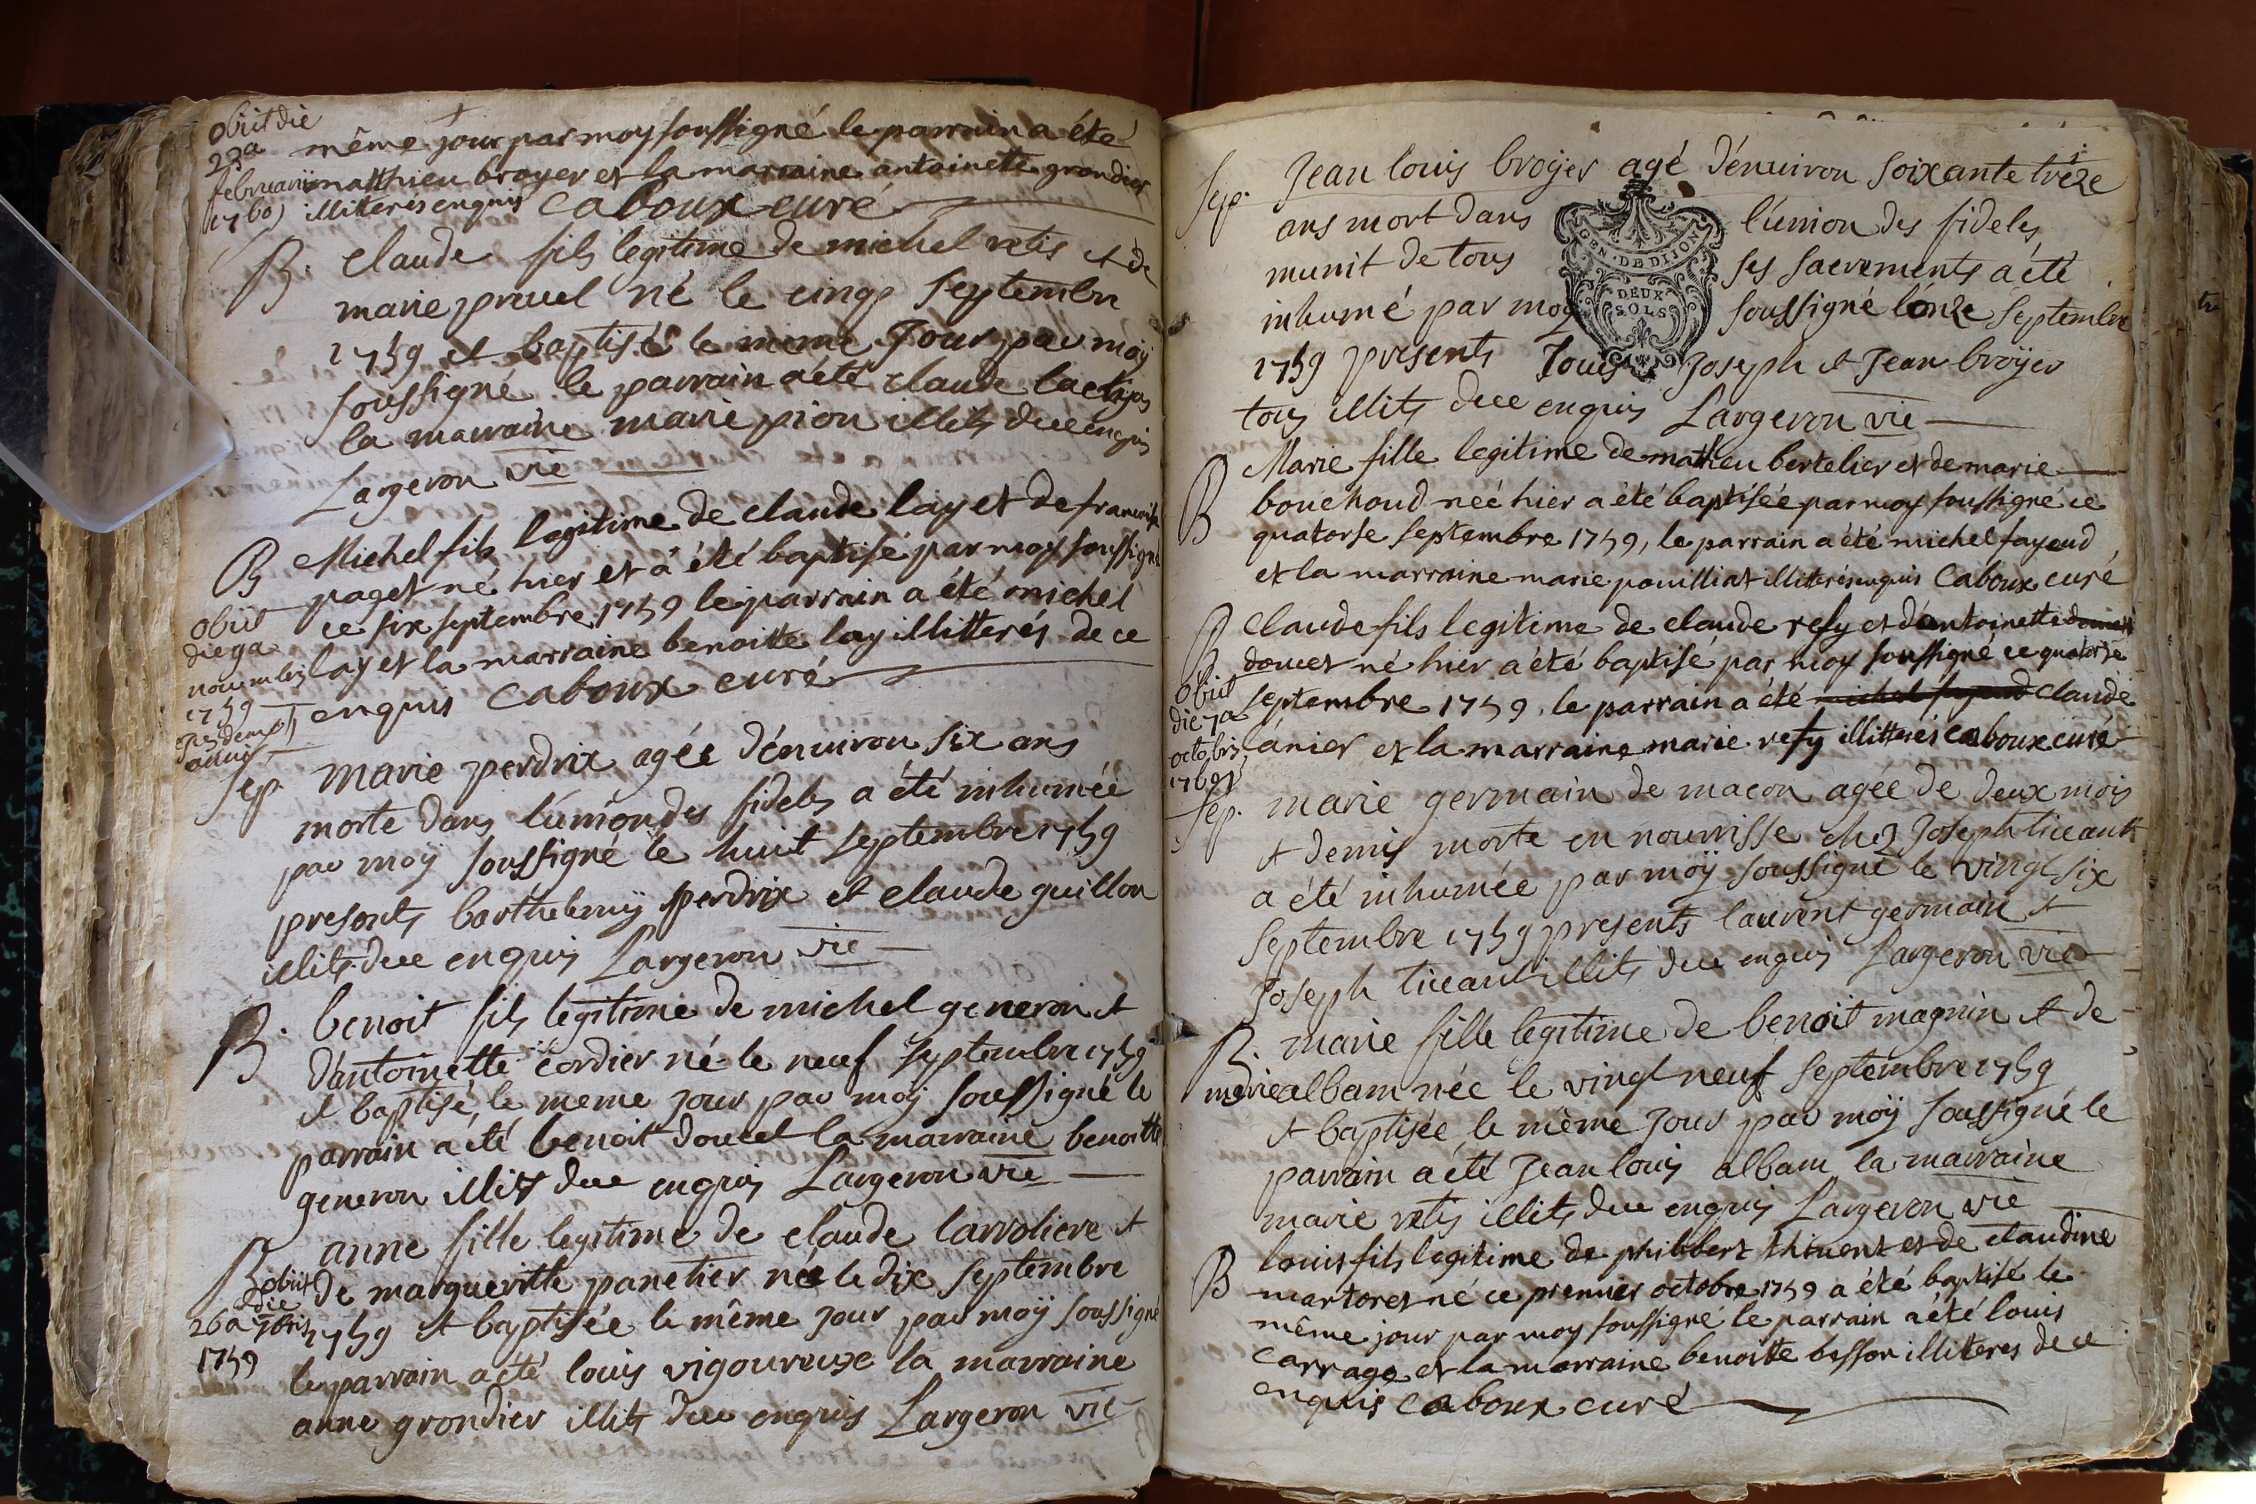 obiit die
23a
februarii
1760
même jour par moy soussigné le parrain a été
matthieu broyer et la marraine antoinette grondier
illiterés enquis Caboux curé
B. Claude fils legitime de michel retis et de
marie pravel né le cinq septembre
1759 et baptisé le meme Jour par moÿ
soussigné le parrain a été claude
la marraine marie pion illits de ce enquis
Largeron vie
B Michel fils legitime de claude lay et de francoise
paget né hier et a été baptisé par moy soussigné
ce six septembre 1759 le parrain a été michel
lay et la marraine benoitte lay illitterés de ce
enquis Caboux curé
obiit
die 9a
novembris
1759
Sep. marie perdrix agée d'enuiron six ans
morte dans l'union des fideles a été inhumée
par moÿ soussigné le huit septembre 1759
presents barthelemÿ perdrix et claude guillon
illits de ce enquis Largeron vie
B. benoit fils legitime de michel generon et
d'antoinette cordier né le neuf septembre 1759
et baptisé le meme jour par moÿ soussigné le
parrain a été benoit doucet la marraine benoitte
generon illits de ce enquis Largeron vie
B anne fille legitime de claude larvoliere et
obiit
die
26a 7bris
1759
de marguerithe panetier née le dix septembre
1759 et baptisée le même jour par moÿ soussigné
le parrain a été louis vigoureuse la marraine
anne grondier illits de ce enquis Largeron vie
Sep. Jean louis broyer agé d'enuiron soixante treze
ans mort dans l'union des fideles
munit de tous ses sacrements a été
inhumé par moy soussigné l'onze septembre
1759 presents Louis Joseph et Jean broÿer
tous illits de ce enquis Largeron vie
GEN. DE DIJON
DEUX
SOLS
B Marie fille legitime de mathieu bertelier et de marie
bouchoud née hier a été baptisée par moy soussigné ce
quatorse septembre 1759, le parrain a été michel fayoud
et la marraine marie pouilliat illiterés enquis Caboux curé
B Claude fils legitime de claude resy et d'antoinette
doucet né hier a été baptisé par moy soussigné ce quatorse
septembre 1759, le parrain a été michel fayoud claude
ánier et la marraine marie resy illitterés caboux curé
obiit
die 7a
octobris
1760
Sep. marie germain de macon agée de deux mois
et demis morte en nourrisse chez Joseph ticeant
a été inhumée par moÿ soussigné le vingt six
septembre 1759 presents laurent germain et
Joseph ticeant illits de ce enquis Largeron vie
B. marie fille legitime de benoit magnin et de
marie albam née le vingt neuf septembre 1759
et baptisée le même jour par moÿ soussigné le
parrain a été Jean louis albam la marraine
marie retis illits de ce enquis Largeron vie
B louis fils legitime de philibert thivent et de claudine
martoret né ce premier octobre 1759 a été baptisé le
même jour par moy soussigné le parrain a été louis
carrage et la marraine benoitte besson illiteres de ce
enquis caboux curé